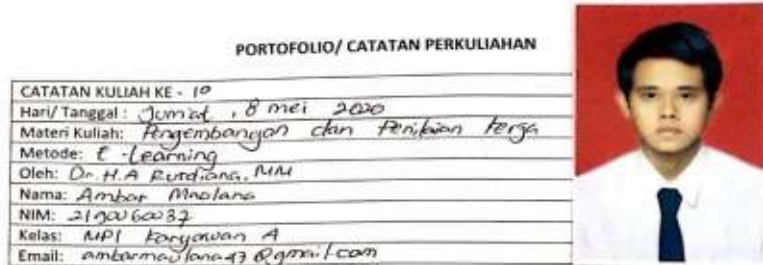 PORTOFOLIO/ CATATAN PERKULIAHAN
CATATAN KULIAH KE - 10
Hari/ Tanggal : Jum'at , 8 mei 2020
Materi Kuliah: Pengembangan dan Penilaian kerja
Metode: E-Learning
Oleh: Dr. H.A Rusdiana, MM
Nama: Ambar Maolana
NIM:
Kelas: MPI Karyawan A
Email: ambarmaulana43@gmail.com